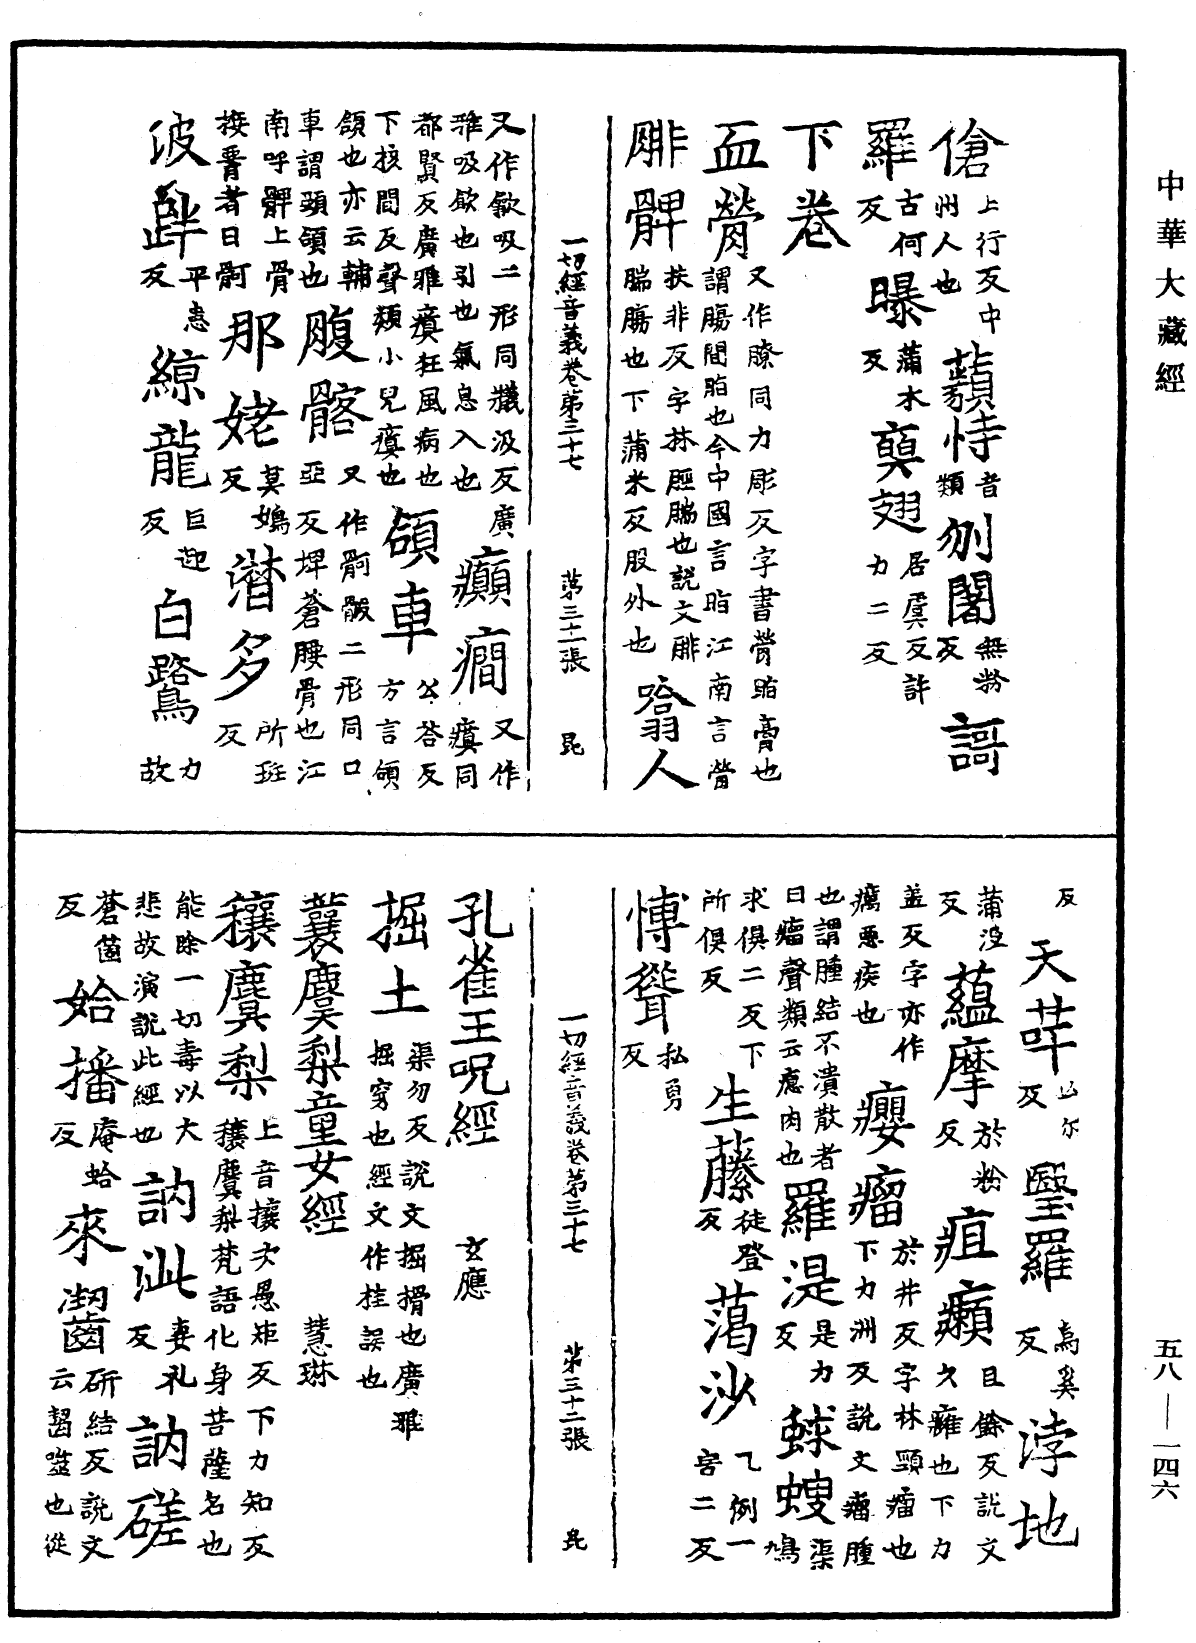 中華大藏經
傖上行反中州人也 蘋恃音類 刎闍無粉反 謌
羅古何反 曝蒲木反 㒹翅居虞反許力二反
下卷
血膋又作膫同力彫反字書膋脂膏也謂腸間脂也今中國言脂江南言膋
腓髀扶非反字林脛腨也說文腓腨腸也下蒲米反股外也 噏人
一切經音義卷第三十七 第三十一張 昆
又作歙吸二形同羲汲反廣雅吸飲也引也氣息入也 癲癇又作瘨同
都賢反廣雅瘨狂風病也下核間反聲類小兒瘨也 頷車公荅反方言頷
頜也亦云輔車謂頭頜也 腹髂又作骱骻二形同口亞反埤蒼腰骨也江
南呼髀上骨接䯊者曰骱 那姥莫媯反 潸多所班反
波跘平患反 綡龍巨迎反 白鷺力故
反 天芉亡尔反 瑿羅烏奚反 浡地
蒲沒反 蘊摩於粉反 疽癩且餘反說文久癰也下力
盖反字亦作癘惡疾也 癭瘤於井反字林頸瘤也下力洲反說文瘤腫
也謂腫結不潰散者曰瘤聲類云瘜肉也 羅湜是力反 蛷螋渠鳩
求俱二反下所俱反 生藤徒登反 蔼沙乙例一害二反
愽聳私勇反
一切經音義卷第三十七 第三十二張 昆
孔雀王呪經 玄應
掘土渠勿反說文掘搰也廣雅掘穿也經文作拄誤也
蘘麌梨童女經 慧琳
穰麌梨上音攘次愚矩反下力知反穰麌梨梵語化身菩薩名也
能除一切毒以大悲故演說此經也 訥泚妻礼反 訥磋
蒼箇反 姶播庵蛤反 來齧研結反說文云齧噬也從
五八—一四六